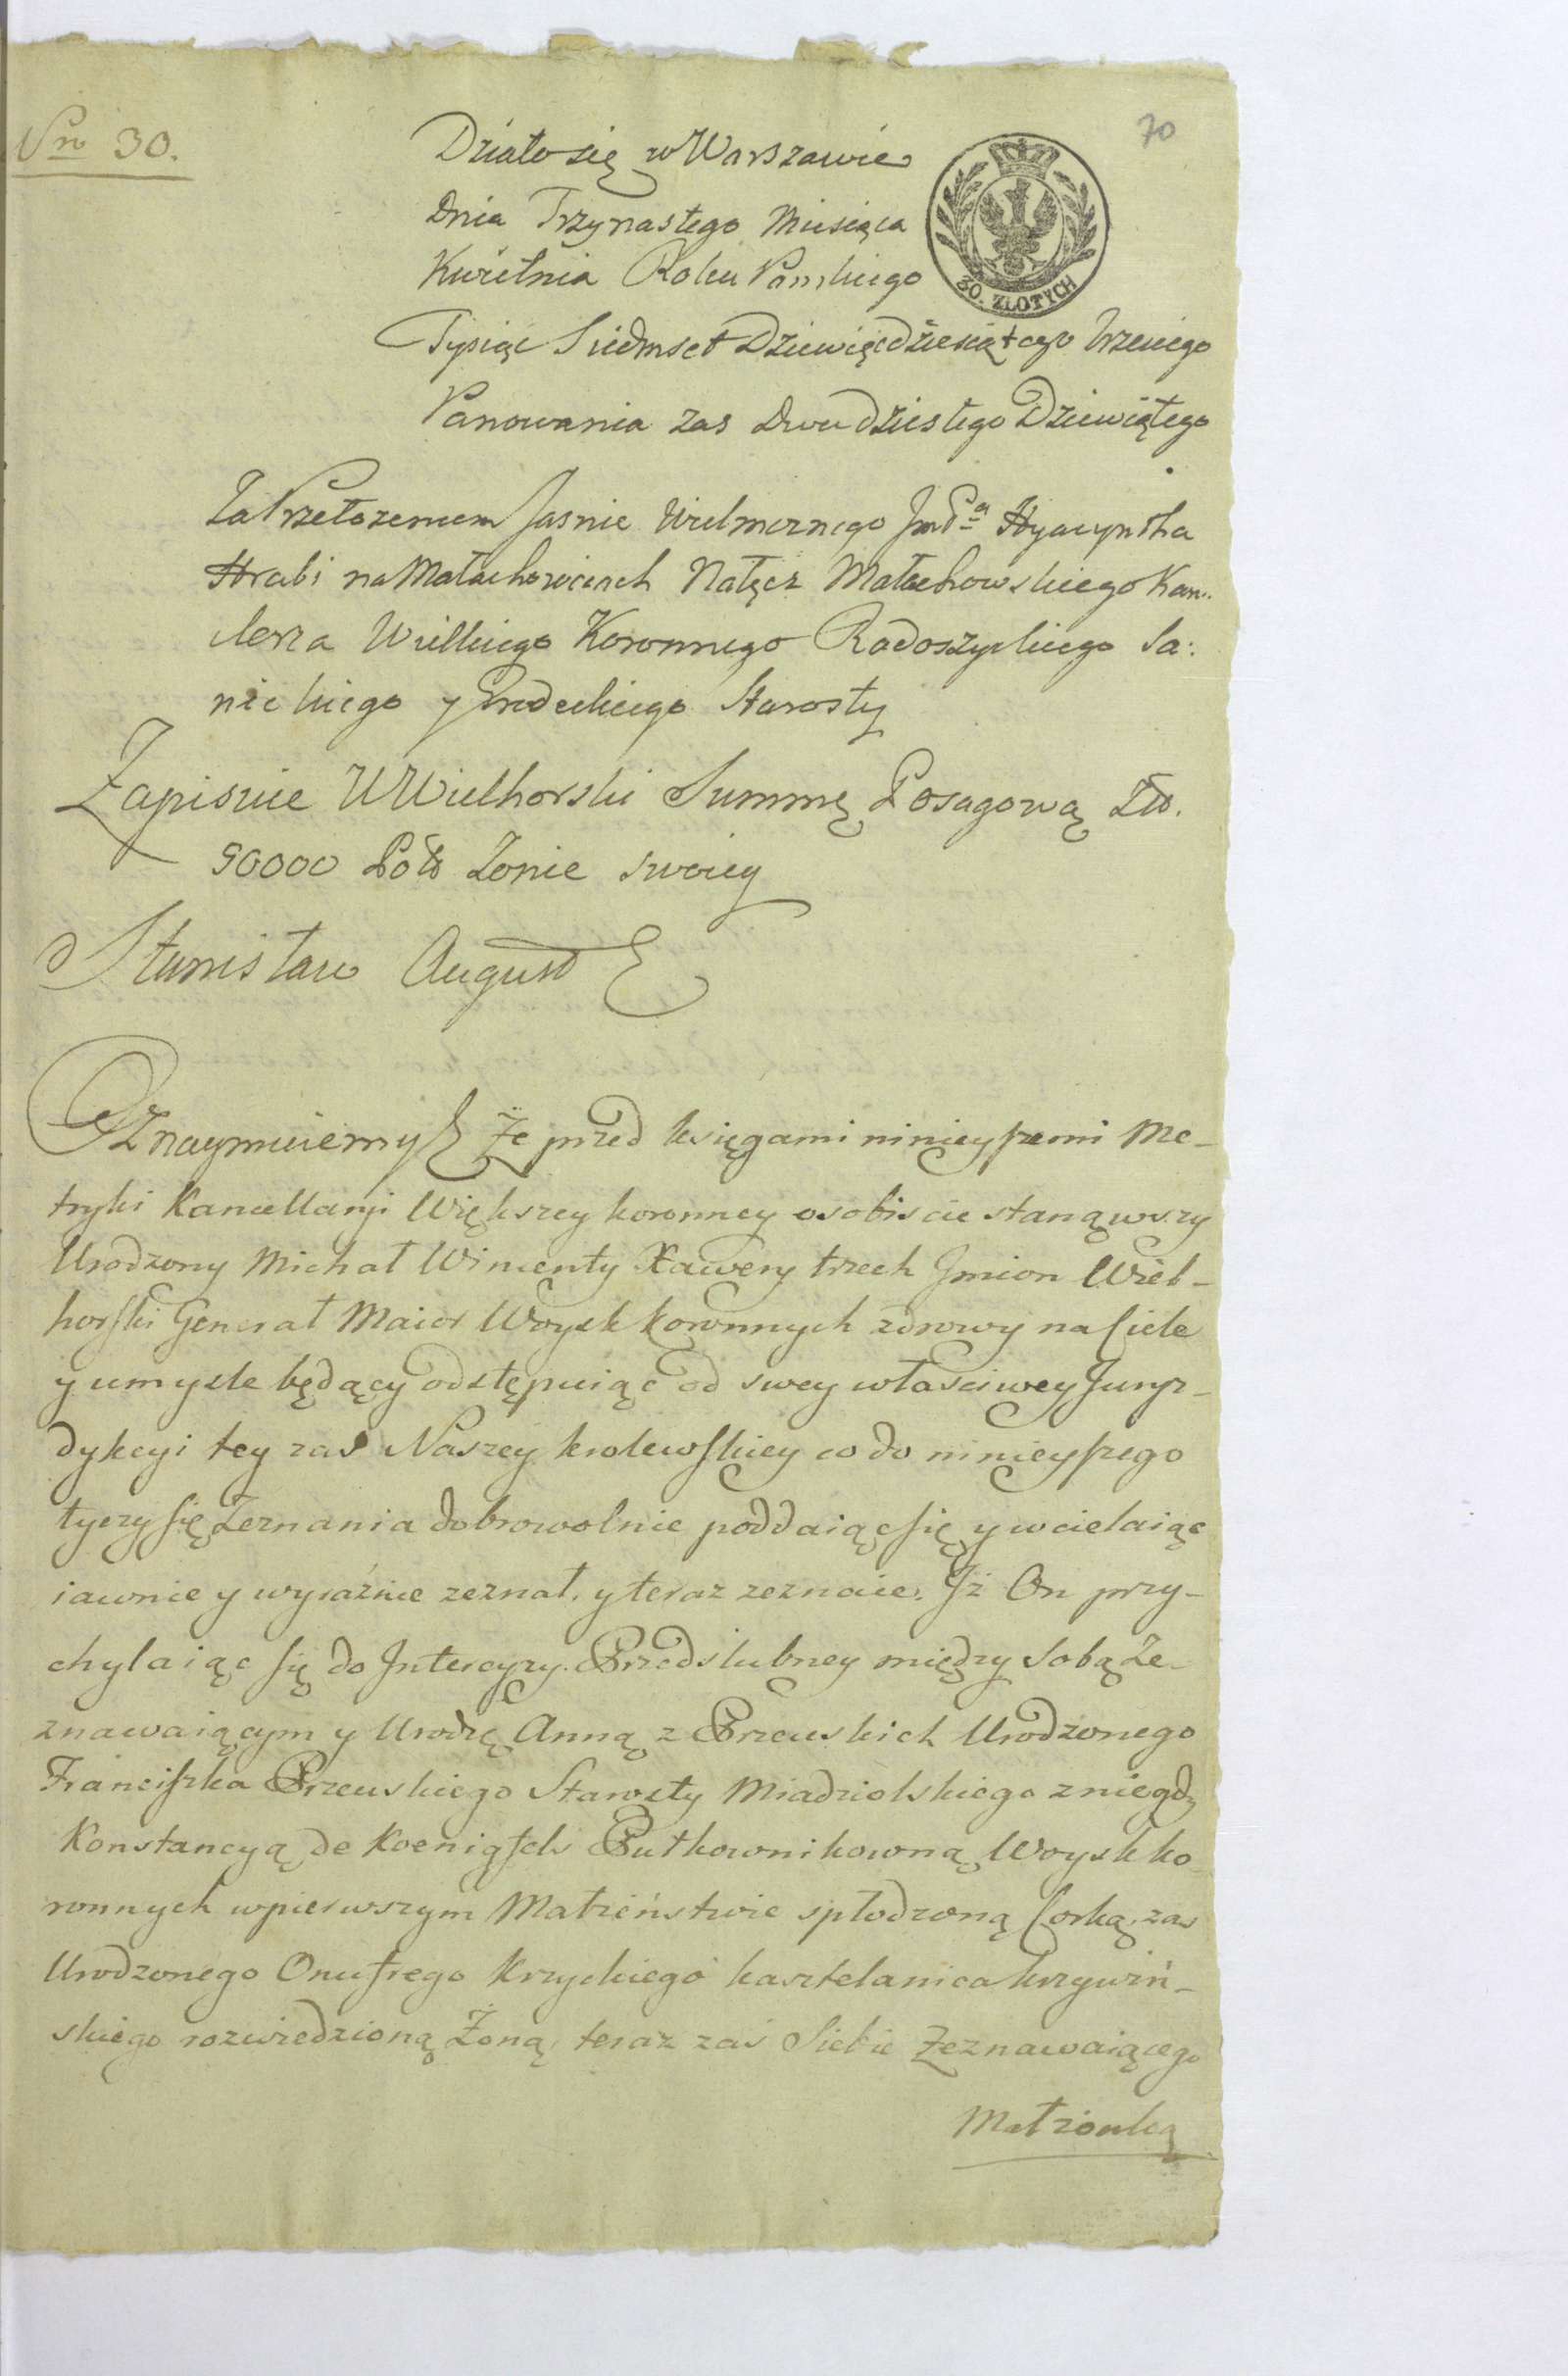 Nro 30.
70
Działo się w Warszawie
Dnia Trzynastego Miesiąca
Kwietnia Roku Pańskiego
30. ZŁOTYCH
Tysiąc Siedmset Dziewięcdziesiątego trzeciego
Panowania zas Dwudziestego Dziewiątego
Za Przełozeniem Jasnie Wielmoznego Jmć Pa Hyacyntha
Hrabi na Małachowicach Nałęcz Małachowskiego Kan:
clerza Wielkiego Koronnego Radoszyckiego Sa:
nickiego y Grodeckiego Starosty
Zapisuie W Wielhorski Summę Posagową Złł.
90000 Pols Zonie swoiey
Stanisław August
Oznaymuiemy Że przed księgami ninieyszemi Me-
tryki Kancellaryi Większey koronney osobiscie stanąwszy
Urodzony Michał Wincenty Xawery trzech Jmion Wiel-
horski Generał Maior Woysk koronnych zdrowy na Ciele
y umysle będący odstępuiąc od swey własciwey Juryz-
dykcyi tey zas Naszey krolewskiey co do ninieyszego
tyczy się Zeznania dobrowolnie poddaiąc się y wcielaiąc
iawnie y wyraźnie zeznał. y teraz zeznaie. Jż On przy-
chylaiąc się do Jntercyzy Przedslubney między Sobą Ze-
znawaiącym y Urodzą Anną z Przeuskich Urodzonego
Franciszka Przeuskiego Starosty Miadziolskiego z niegdy
Konstancyą de Koenigfels Pułkownikowną Woysk ko-
ronnych w pierwszym Małzeństwie spłodzoną Corką, zas
Urodzonego Onufrego Krzyckiego kasztelanica krzywiń-
skiego rozwiedzioną Żoną, teraz zaś Siebie Zeznawaiącego
Małzonką